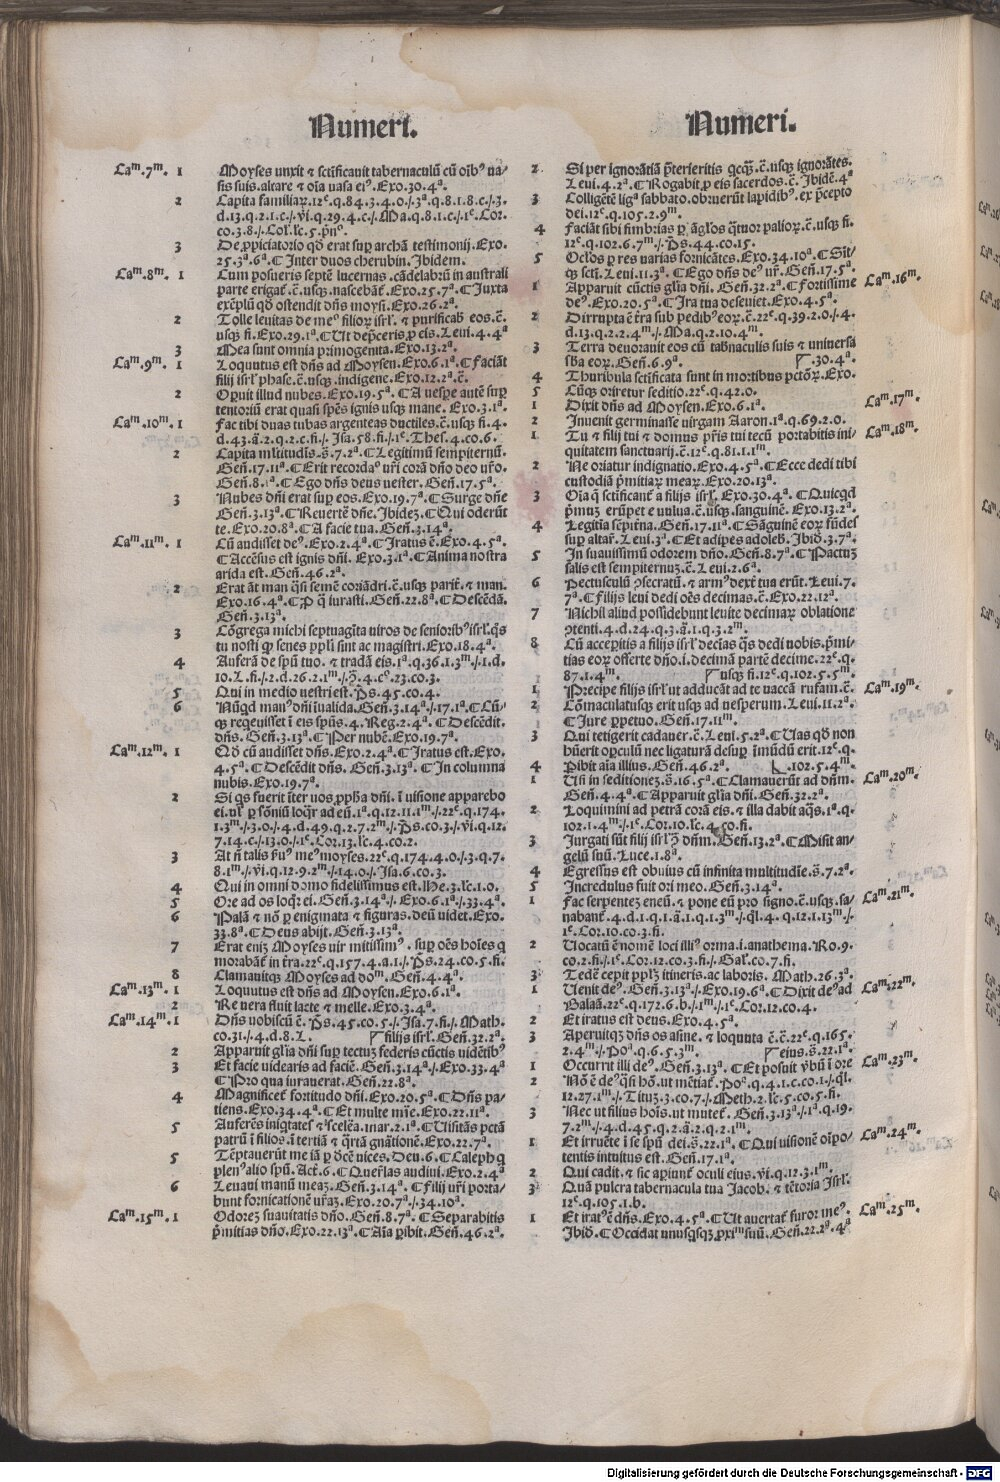 Numeri.
Caᵐ.7ᵐ. 1 Moyses unxit ⁊ sctificavit tabernaculũ cũ oib⁹ va/
sis suis.altare ⁊ oia vasa ei⁹.Exo.30.4ᵃ.
2 Capita familiaꝝ.12ᶜ.q.84.3.4.o./.3ᵃ.q.8.1.8.c./.3.
d.13.q.2.1.c./.vi.q.29.4.c./.Ma.q.8.1.c./.1ᶜ.Cor.
co.3.8./.Col.lc.5.pñᶜ.
3 De ꝓpiciatorio qđ erat sup̱ archã testimonij.Exo.
25.3ᵃ.6ᵃ.¶Inter duos cherubin.Ibidem.
Caᵐ.8ᵐ. 1 Cum posueris septẽ lucernas.cãdelabrũ in australi
parte erigat̃.c̃.usq̃.nascebat̃.Exo.25.7ᵃ.¶Iuxta
exẽplũ qđ ostendit dñs moysi.Exo.26.2ᵃ.
2 Tolle levitas de me⁰ filioꝝ isrl̃.⁊ purificab̃ eos.c̃.
usq̃ fi.Exo.29.1ᵃ.¶Ut dep̃ceris ꝓ eis.Levi.4.4ᵃ
3 Mea sunt omnia primogenita.Exo.13.2ᵃ.
Caᵐ.9ᵐ. 1 Loquutus est dñs ad Moysen.Exo.6.1ᵃ.¶Faciãt
filij isrl̃ phase.c̃.usq̃.indigene.Exo.12.2ᵃ.c̃.
2 Oꝑuit illud nubes.Exo.19.5ᵃ.¶A vespe autẽ sup̱
tentoriũ erat quasi spẽs ignis usq̃ mane.Exo.3.1ᵃ.
Caᵐ.10ᵐ. 1 Fac tibi duas tubas argenteas ductiles.c̃.usq̃ fi.4.
d.43.ã.2.q.2.c.fi./.Isa.58.fi./.1ᶜ.Thes.4.co.6.
2 Capita mĩtitudĩs.s̃.7.2ᵃ.¶Legitimũ sempiternũ.
Geñ.17.11ᵃ.¶Erit recordac̃ vr̃i corã dño deo vr̃o.
Geñ.8.1ᵃ.¶Ego dñs deus vester.Geñ.17.5ᵃ.
3 Nubes dñi erat sup̱ eos.Exo.19.7ᵃ.¶Surge dñe
Geñ.3.13ᵃ.¶Revertẽ dñe.Ibidez.¶Qui oderũt
te.Exo.20.8ᵃ.¶A facie tua.Geñ.3.14ᵃ.
Caᵐ.11ᵐ. 1 Cũ audisset de⁹.Exo.2.4ᵃ.¶Iratus ẽ.Exo.4.5ᵃ.
¶Accẽsus est ignis dñi.Exo.3.1ᵃ.¶Anima nostra
arida est.Geñ.46.2ᵃ.
2 Erat ãt man q̃si semẽ coriãdri.c̃.usq̃ parit̃.⁊ man.
Exo.16.4ᵃ.¶P̱ q̃ iurasti.Geñ.22.8ᵃ.¶Descẽdã.
Geñ.3.13ᵃ.
3 Cõgrega michi septuagĩta viros de seniorib⁹ isrl̃.q̃s
tu nosti qꝫ senes pp̃li sunt ac magistri.Exo.18.4ᵃ.
4 Auferã de spũ tuo.⁊ tradã eis.1ᵃ.q.36.1.3ᵐ./.1.d.
10.L.fi./.2.d.26.2.1ᵐ./.9̃.4.cᵒ.23.co.3.
5 Qui in medio vestri est.Ps.45.co.4.
6 Nũqd man⁹ dñi ĩvalida.Geñ.3.14ᵃ./.17.1ᵃ.¶Cũ/
q̃ reqevisset ĩ eis spũs.4.Reg.2.4ᵃ.¶Descẽdit.
dñs.Geñ.3.13ᵃ.¶Per nubẽ.Exo.19.7ᵃ.
Caᵐ.12ᵐ. 1 Qđ cũ audisset dñs.Exo.2.4ᵃ.¶Iratus est.Exo.
4.5ᵃ.¶Descẽdit dñs.Geñ.3.13ᵃ.¶In columna
nubis.Exo.19.7ᵃ.
2 Si q̃s fuerit ĩter vos ꝓph̃a dñi.ĩ visione apparebo
ei.vl̃ p̱ sõniũ loqr̃ ad eũ.1ᵃ.q.12.11.1ᵐ./.22ᶜ.q.174.
1.3ᵐ./.3.o./.4.d.49.q.2.7.2ᵐ./.Ps.co.3./.vi.q.12.
7.14.c./.13.o./.1ᶜ.Cor.13.lc.4.co.2.
3 At ñ talis ẽu⁹ me⁹ moyses.22ᶜ.q.174.4.o./.3.q.7.
8.1ᵐ./.vi.q.12.9.2ᵐ./.14.o./.Isa.6.co.3.
4 Qui in omni domo fidelissimus est.He.3.lc.1.o.
5 Ore ad os loqr̃ ei.Geñ.3.14ᵃ./.Exo.6.1ᵃ./.33.4ᵃ.
6 Palã ⁊ nõ p̱ enigmata ⁊ figuras.deũ videt.Exo.
33.8ᵃ.¶Deus abijt.Geñ.3.13ᵃ.
7 Erat eniz Moyses vir mitissim⁹.sup̱ oẽs hoĩes q
morabãt̃ in t̃ra.22ᶜ.q.157.4.a.1./.Ps.24.co.5.fi.
8 Clamavitq̃ Moyses ad doᵐ.Geñ.4.4ᵃ.
Caᵐ.13ᵐ. 1 Loquutus est dñs ad Moysen.Exo.6.1ᵃ.
2 Re vera fluit lacte ⁊ melle.Exo.3.4ᵃ.
Caᵐ.14ᵐ. 1 Dñs vobiscũ ẽ.Ps.45.co.5./.Isa.7.fi./.Math.
co.31./.4.d.8.L. ⌈filijs isrl̃.Geñ.32.2ᵃ.
2 Apparuit gl̃ia dñi sup̱ tectuz federis cũctis vidẽtib⁹
3 Et facie videaris ad faciẽ.Geñ.3.14ᵃ./.Exo.33.4ᵃ
¶Pro qua iuraverat.Geñ.22.8ᵃ.
4 Magnificet̃ fortitudo dñi.Exo.20.5ᵃ.¶Dñs pa/
tiens.Exo.34.4ᵃ.¶Et multe mĩe.Exo.22.11ᵃ.
5 Auferẽs iniqtates ⁊ scelẽa.mar.2.1ᵃ.¶Visitãs pctã
patrũ ĩ filios.ĩ tertiã ⁊ q̃rtã gnãtionẽ.Exo.22.7ᵃ.
5 Tẽptaverũt me iã p̱ dcẽ vices.Deu.6.¶Caleph q
plen⁹ alio spũ.Act̃.6.¶Quer̃las audivi.Exo.2.4ᵃ
6 Levavi manũ meaz.Geñ.3.14ᵃ.¶Filij vr̃i porta/
bunt fornicationẽ vr̃az.Exo.20.7ᵃ./.34.10ᵃ.
Caᵐ.15ᵐ. 1 Odorez suavitatis dño.Geñ.8.7ᵃ.¶Separabitis
p̃mitias dño.Exo.22.13ᵃ.¶Aĩa ꝑibit.Geñ.46.2ᵃ.
Numeri.
2 Si per ignorãtiã p̃terieritis qcq̃.c̃.usq̃ ignorãtes.
Levi.4.2ᵃ.¶Rogabit ꝓ eis sacerdos.c̃.Ibidẽ.4ᵃ
3 Colligẽtẽ ligᵃ sabbato.obruerũt lapidib⁹.ex p̃cepto
dei.12ᶜ.q.105.2.9ᵐ.
4 Faciãt sibi fimbrias p̱ ãglos q̃tuor palioꝝ.c̃.usq̃ fi.
12ᶜ.q.102.6.7ᵐ./.Ps.44.co.15.
5 Oclos p̱ res varias fornicãtes.Exo.34.10ᵃ.¶Sĩt/
q̃ scti.Levi.11.3ᵃ.¶Ego dñs de⁹ vr̃.Geñ.17.5ᵃ.
Caᵐ.16ᵐ. 1 Apparuit cũctis gl̃ia dñi.Geñ.32.2ᵃ.¶Fortissime
de⁹.Exo.20.5ᵃ.¶Ira tua deseviet.Exo.4.5ᵃ.
2 Dirrupta ẽ t̃ra sub pedib⁹ eoꝝ.c̃.22ᶜ.q.39.2.o./.4.
d.13.q.2.2.4ᵐ./.Ma.q.2.10.4ᵐ.
3 Terra devoravit eos cũ tab̃naculis suis ⁊ universa
sb̃a eoꝝ.Geñ.6.9ᵃ. ⌈.30.4ᵃ.
4 Thuribula sctificata sunt in mortibus pctõꝝ.Exo.
5 Cũq̃ oriretur seditio.22ᶜ.q.42.o.
Caᵐ.17ᵐ. 1 Dixit dñs ad Moysen.Exo.6.1ᵃ.
2 Invenit germinasse virgam Aaron.1ᵃ.q.69.2.o.
Caᵐ.18ᵐ. 1 Tu ⁊ filij tui ⁊ domus pr̃is tui tecũ portabitis ini/
quitatem sanctuarij.c̃.12ᶜ.q.81.1.1ᵐ.
2 Ne oriatur indignatio.Exo.4.5ᵃ.¶Ecce dedi tibi
custodiã p̃mitiaꝝ meaꝝ.Exo.20.13ᵃ.
3 Oĩa q̃ sctificant̃ a filijs isrl̃.Exo.30.4ᵃ.¶Quicqd
p̃muz erũpet e vulva.c̃.usq̃.sanguinẽ.Exo.13.2ᵃ.
4 Legitĩa sepit̃na.Geñ.17.11ᵃ.¶Sãguinẽ eoꝝ fũdes
sup̱ altar̃.Levi.3ᵃ.¶Et adipes adoleb̃.Ibiđ.3.7ᵃ.
5 In suavissimũ odorem dño.Geñ.8.7ᵃ.¶Pactuz
salis est sempiternuz.c̃.Levi.2.6ᵃ.
6 Pectusculũ ꝯsecratũ.⁊ arm⁹ dext̃ tua erũt.Levi.7.
7ᵃ.¶Filijs levi dedi oẽs decimas.c̃.Exo.22.12ᵃ.
7 Nichil aliud possidebunt levite decimaꝝ oblatione
ꝯtenti.4.d.24.q.3.ã.1.q.3.2ᵐ.
8 Cũ acceꝑitis a filijs isrl̃ decĩas q̃s dedi vobis.p̃mi/
tias eoꝝ offerte dño.i.decimã partẽ decime.22ᶜ.q.
87.1.4ᵐ. ⌈usq̃ fi.12ᶜ.q.102.5.5ᵐ
Caᵐ.19ᵐ. 1 Precipe filijs isrl̃ ut adducãt ad te vaccã rufam.c̃.
2 Cõmaculatusq̃ erit usq̃ ad vesperum.Levi.11.2ᵃ.
¶Iure ꝑpetuo.Geñ.17.11ᵐ.
3 Qui tetigerit cadaver.c̃.Levi.5.2ᵃ.¶Vas qđ non
hũerit oꝑculũ nec ligaturã desup̱ ĩmũdũ erit.12ᶜ.q.
4 Pibit aĩa illius.Geñ.46.2ᵃ. ⌊.102.5.4ᵐ.
Caᵐ.20ᵐ. 1 Vsi in seditionez.s̃.16.5ᵃ.¶Clamaverũt ad dñm.
Geñ.4.4ᵃ.¶Apparuit gl̃ia dñi.Geñ.32.2ᵃ.
2 Loquimini ad petrã corã eis.⁊ illa dabit aq̃s.1ᵃ.q.
102.1.4ᵐ./.1ᶜ.Cor.10.lc.4.co.fi.
3 Iurgati sũt filij isrl̃ 9̃ dñm.Geñ.13.2ᵃ.¶Misit an/
gelũ suũ.Luce.1.8ᵃ.
4 Egressus est obvius cũ infinita multitudĩe.s̃.7.2ᵃ.
5 Incredulus fuit ori meo.Geñ.3.14ᵃ.
Caᵐ.21ᵐ. 1 Fac serpentez eneũ.⁊ pone eũ pro signo.c̃.usq̃.sa/
nabant̃.4.d.1.q.1.ã.1.q.1.3ᵐ./.ql̃.4.q.12.1.13ᵐ./.
1ᶜ.Cor.10.co.3.fi.
2 Vocatũ ẽ nomẽ loci illi⁹ orma.i.anathema.Ro.9.
co.2.fi./.1ᶜ.Cor.12.co.3.fi./.Gal̃.co.7.fi.
3 Tedẽ cepit pp̃lz itineris.ac laboris.Math.26.3ᵃ.
Caᵐ.22ᵐ. 1 Venit de⁹.Geñ.3.13ᵃ./.Exo.19.6ᵃ.¶Dixit de⁹ ad
Balaã.22ᶜ.q.172.6.b./.1ᵐ./.1ᶜ.Cor.12.co.4.
2 Et iratus est deus.Exo.4.5ᵃ.
3 Aperuitqz dñs os asine.⁊ loquuta ẽ.c̃.22ᶜ.q.165.
2.4ᵐ./.Poᵃ.q.6.5.3ᵐ. ⌈eius.s̃.22.1ᵃ.
Caᵐ.23ᵐ. 1 Occurrit illi de⁹.Geñ.3.13ᵃ.¶Et posuit ṽbũ ĩ ore
2 Nõ ẽ de⁹ q̃si hõ.ut mẽtiat̃.Poᵃ.q.4.1.c.co.1./.ql̃.
12.27.1ᵐ./.Tituz.3.co.7./.Meth.2.lc.5.co.5.fi.
3 Nec ut filius hoĩs.ut mutet̃.Geñ.3.13ᵃ./.1ᵃ.q.19.
7.2ᵐ./.4.d.45.q.2.ã.2.q.2.1ᵐ.
Caᵐ.24ᵐ. 1 Et irruẽte ĩ se spũ dei.s̃.22.1ᵃ.¶Qui visionẽ oĩpo/
tentis intuitus est.Geñ.17.1ᵃ.
2 Qui cadit.⁊ sic apiunt̃ oculi eius.vi.q.12.3.1ᵐ.
3 Quã pulcra tabernacula tua Jacob.⁊ tẽtoria Isrl̃.
12ᶜ.q.105.1.b.
Caᵐ.25ᵐ. 1 Et irat⁹ ẽ dñs.Exo.4.5ᵃ.¶Ut avertat̃ furor me⁹.
Ibiđ.¶Occidat unusqsqz ꝓximũ suũ.Geñ.22.2ᵃ.4ᵃ
Digitalisierung gefördert durch die Deutsche Forschungsgemeinschaft - DFG